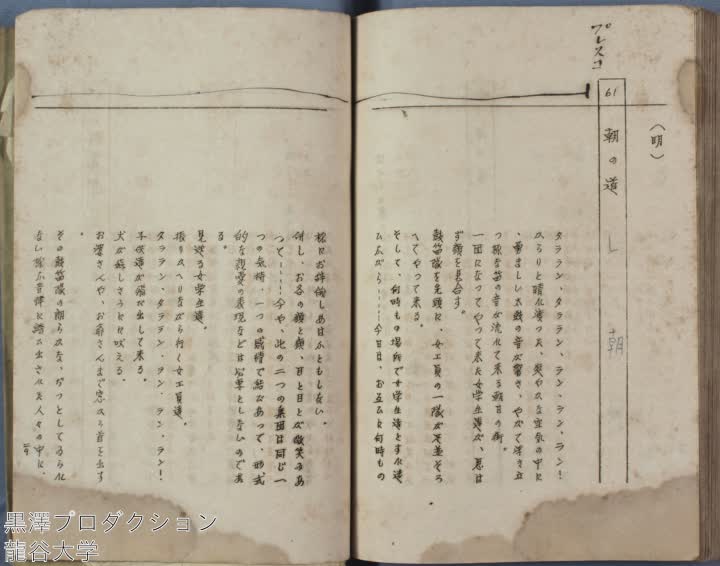 プレスコ
(明)
61 朝の道 朝
タララン、タララン、ラン、ラン、ラン!
からりと晴れ渡つた、爽やかな空気の中に
、勇ましい太鼓の音が響き、やがて浮き立
つ様な笛の音が流れて来る朝日の街。
一団になつてやつて来た女学生達が、思は
ず顔を見合す。
鼓笛隊を先頭に、女工員の一隊が足並そろ
へてやつて来る。
そして、何時もの場所で女学生達とすれ違
ひ乍ら……今日は、お互ひに何時もの
様にお辞儀しあはふともしない。
併し、お各の顔と顔、目と目とが微笑みあ
つて……今や、此の二つの集団は同じ一
つの気持、一つの感情で結びあつて、形式
的な親愛の表現などは必要としないのであ
る。
見送る女学生達。
振りかへりながら行く女工員達。
タララン、タララン、ラン、ラン、ラン!
子供達が飛び出して来る。
犬が嬉しさうに吠える。
お婆さんや、お爺さんまで窓から首を出す
。
その鼓笛隊の朗らかな、ぢつとしてゐられ
ない様な音律に踏み出された人々の中に、
黒澤プロダクション
龍谷大学